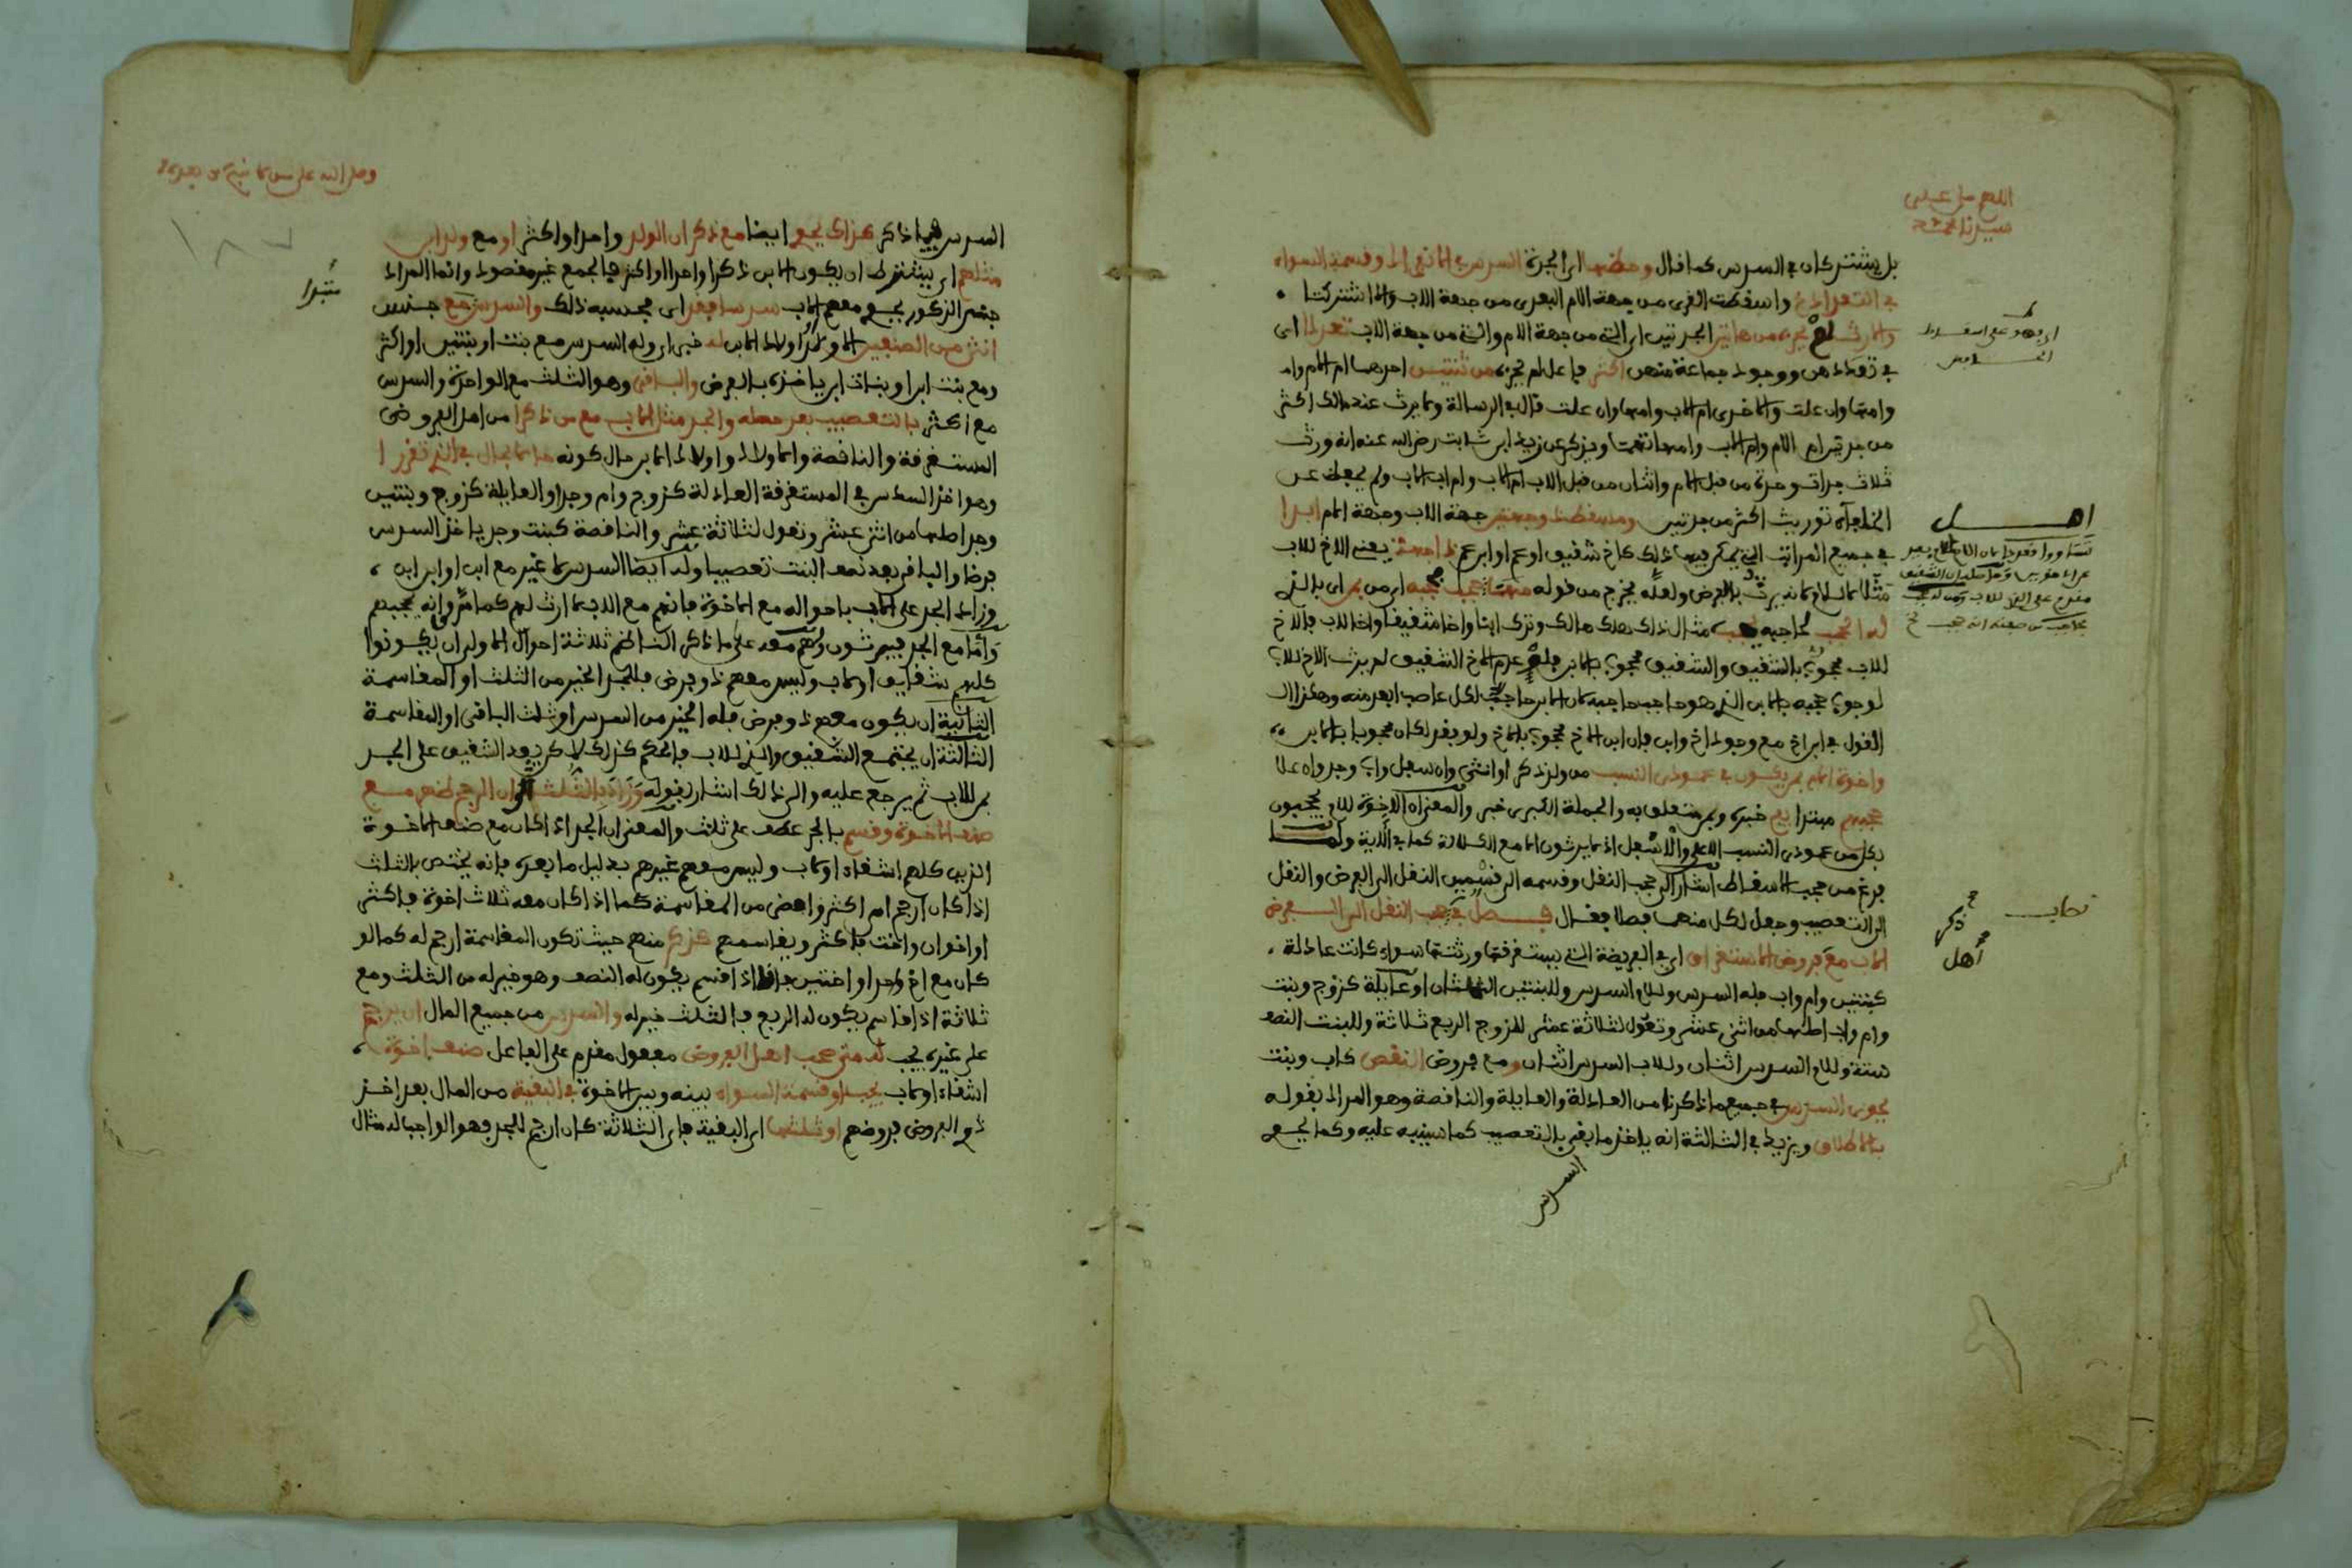 اللهم صل على
سيدنا محمد
بل يشتركان في السدس كما قال وحظها اي الجدة السدس في الانفراد وقسمة السواء
في التعدد واسقطت القربى من جهة الام البعدى من جهة الاب والا اشتركتا
والارث لغير من هاتين الجدتين اي التي من جهة الام والتي من جهة الاب تعددا اى
في تعددهن ووجود جماعة منهن اكثر فاعل لم يجز من ثنتين احدهما ام الام وام
وامها وان علت والاخرى ام الاب وامها وان علت قال في الرسالة ولا يرث عند مالك اكثر
من جدتين ام الام وام الاب وامهاتهما ويذكر عن زيد ابن ثابت رضي الله عنه انه ورث
ثلاث جدات وحدة من قبل الام واثنان من قبل الاب ام الاب وام اب الاب ولم يحفظ عن
الخلفاء توريث اكثر من جدتين ومسقط ذو جهتين جهة الاب وجهة الام ابدا
في جميع المراتب التي يمكن فيها ذلك كاخ شقيق او عم او ابن عم ذا جهة يعني الاخ للاب
مثلا لا للام لانه يرث بالفرض ولعله يخرج من قوله ومن حجب حجبه اي من اى بالذي
له الحجب لحاجبه يجب مثال ذلك هلك هالك وترك ابنا واخا شقيقا واخا للاب فالاخ
للاب محجوب بالشقيق والشقيق محجوب بالابن فلو عدم الاخ الشقيق لم يرث الاخ للاب
لوجوب حجبه بالابن الذي هو حاجب حاجبه لان الابن حاجب لكل عاصب ابعد منه وهكذا
القول في ابن اخ مع وجود اخ وابن فان ابن الاخ محجوب بالاخ ولو فقد لكان محجوبا بالابن
واخوة الام بمن يكون في عمودي النسب من ولد ذكر او انثى وان سفل واب وجد وان علا
حجبهم مبتدا يقع خبره وبمن متعلق به والجملة الكبرى خبر والمعنى ان الاخوة للام يحجبون
بكل من عمودي النسب الاعلى والاسفل اذ لا يرثون الا مع الكلالة كما في الآية ولما
فرغ من حجب الاسقاط اشار الى حجب النقل وقسمه الى قسمين النقل الى الفرض والنقل
الى التعصيب وجعل لكل منهما فصلا فقال فصل في حجب النقل الى الفرض
الاب مع فروض الاستغراق اي في الفريضة التي يستغرقها ورثتها سواء كانت عادلة
كبنتين وام واب فله السدس وللام السدس وللبنتين الثلثان او عايلة كزوج وبنت
وام واب اصلها من اثني عشر وتعول لثلاثة عشر للزوج الربع ثلاثة وللبنت النصف
ستة وللام السدس اثنان وللاب السدس اثنان ومع فروض النقص كاب وبنت
يحوى السدس في جميع ما ذكرنا من العادلة والعايلة والناقصة وهو المراد بقوله
بالاطلاق ويزيد في الثالثة انه ياخذ ما بقي بالتعصيب كما سينبه عليه وكما يحوى
السدس
اهل
ذكر
اهل
وصلى الله على من لا نبي من بعده
السدس فيما ذكر هكذا يحوى ايضا مع ذكران الولد واحدا او اكثر او مع ولد ابن
مثلهم اي يشترط ان يكون الابن ذكرا واحدا او اكثر فالجمع غير مقصود وانما المراد
جنس الذكور يحوى معهم الاب سدسا فقد اى فحسبه ذلك والسدس مع جنس
انثى من الصنفين الاولاد واولاد الابن له خبر اي وله السدس مع بنت او بنتين او اكثر
ومع بنت ابن او بنات ابن ياخذه بالفرض والباقي وهو الثلث مع الواحدة والسدس
مع اكثر بالتعصيب بعد حطه والجد مثل الاب مع من ذكرا من اهل الفروض
المستغرقة والناقصة والاولاد واولاد الابن حال كونه حالا بحال في الذي تقررا
وهو اخذ السدس في المستغرقة العادلة كزوج وام وجد او العايلة كزوج وبنتين
وجد اصلها من اثني عشر وتعول لثلاثة عشر والناقصة كبنت وجد ياخذ السدس
فرضا والباقي بعد نصف البنت تعصيبا وله ايضا السدس لا غير مع ابن او ابن ابن
وزاد الجد على الاب باحواله مع الاخوة فانهم مع الاب لا ارث لهم كما مر وانه يحجبهم
واما مع الجد فيرثون ولهم معه على ما ذكر الناظم ثلاثة احوال الاولى ان يكونوا
كلهم شقايق او لاب وليس معهم ذو فرض فللجد الخير من الثلث او المقاسمة
الثانية ان يكون معهم ذو فرض فله الخير من السدس او ثلث الباقي او المقاسمة
الثالثة ان يجتمع الشقيق والذي للاب فالحكم كذلك لاكن يعد الشقيق على الجد
من للاب ثم يرجع عليه والى ذلك اشار بقوله وزاد بالثلث ان الرجح ظهر مع
صنف الاخوة وقسم بالجر عطف على ثلث والمعنى ان الجد اذا كان مع صنف الاخوة
الذين كلهم اشقاء او لاب وليس معهم غيرهم بدليل ما بعده فانه يختص بالثلث
اذا كان ارجح اي اكثر وافضل من المقاسمة كما اذا كان معه ثلاث اخوة فاكثر
او اخوان واخت فاكثر ويقاسمهم كذكر منهم حيث تكون المقاسمة ارجح له كما لو
كان مع اخ واحد او اختين فانه اذا اقتسم يكون له النصف وهو خير له من الثلث ومع
ثلاثة اذا قاسم يكون له الربع فالثلث خير له والسدس من جميع المال ان يرجح
على غيره يجب له متى صحب اهل الفروض مفعول مقدم على الفاعل صنف اخوة
اشقاء او لاب يحب او قسمة السواء بينه وبين الاخوة في البقية من المال بعد اخذ
ذوي الفروض فروضهم او ثلثها اي البقية فاي الثلاثة كان ارجح للجد فهو الواجب له مثال